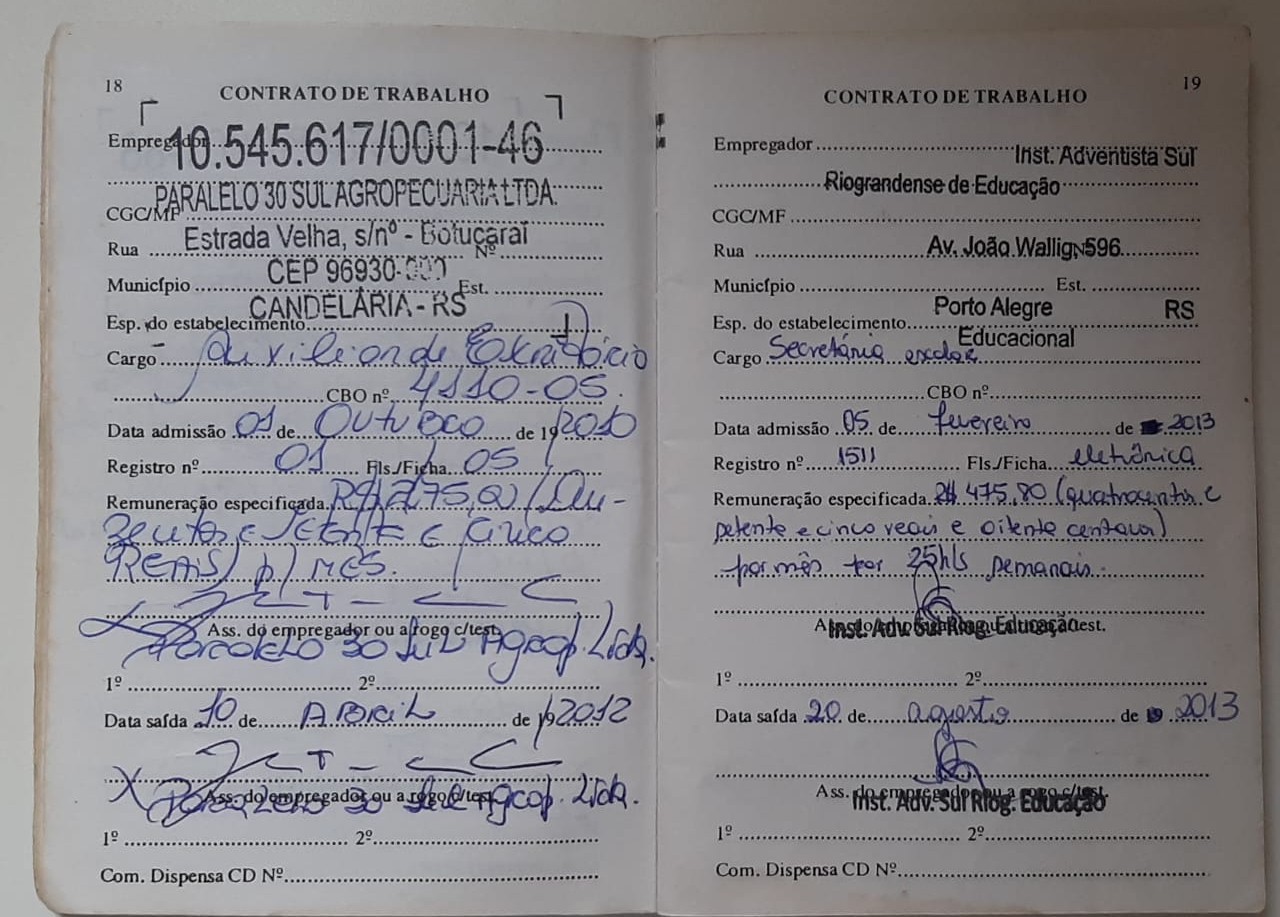 18
CONTRATO DE TRABALHO
Empregador
10.545.617/0001-46
PARALELO 30 SUL AGROPECUARIA LTDA.
CGC/MF
Estrada Velha, s/nº - Botucaraí
Rua Nº
CEP 96930-000
Município Est.
CANDELÁRIA - RS
Esp. do estabelecimento
Cargo Auxiliar de Escritório
CBO nº 4110-05.
Data admissão 01 de Outubro de 19 2010
Registro nº 01 Fls./Ficha 05
Remuneração especificada
REAIS) p/ MÊS.
Ass. do empregador ou a rogo c/test.
Paralelo 30 Sul Agrop. Ltda.
1º 2º
Data saída 10 de ABRIL de 19 2012
Ass. do empregador ou a rogo c/test.
Paralelo 30 Sul Agrop. Ltda.
1º 2º
Com. Dispensa CD Nº
19
CONTRATO DE TRABALHO
Empregador Inst. Adventista Sul
Riograndense de Educação
CGC/MF
Rua Av. João Wallig, Nº 596
Município Est.
Porto Alegre RS
Esp. do estabelecimento
Educacional
Cargo Secretária escolar
CBO nº
Data admissão 05 de fevereiro de 2013
Registro nº 1511 Fls./Ficha eletrônica
Remuneração especificada 475,80 (quatrocentos e
setenta e cinco reais e oitenta centavos)
por mês por 25hls semanais.
Ass. do empregador ou a rogo c/test.
Inst. Adv. Sul Riog. Educação
1º 2º
Data saída 20 de agosto de 2013
Ass. do empregador ou a rogo c/test.
Inst. Adv. Sul Riog. Educação
1º 2º
Com. Dispensa CD Nº